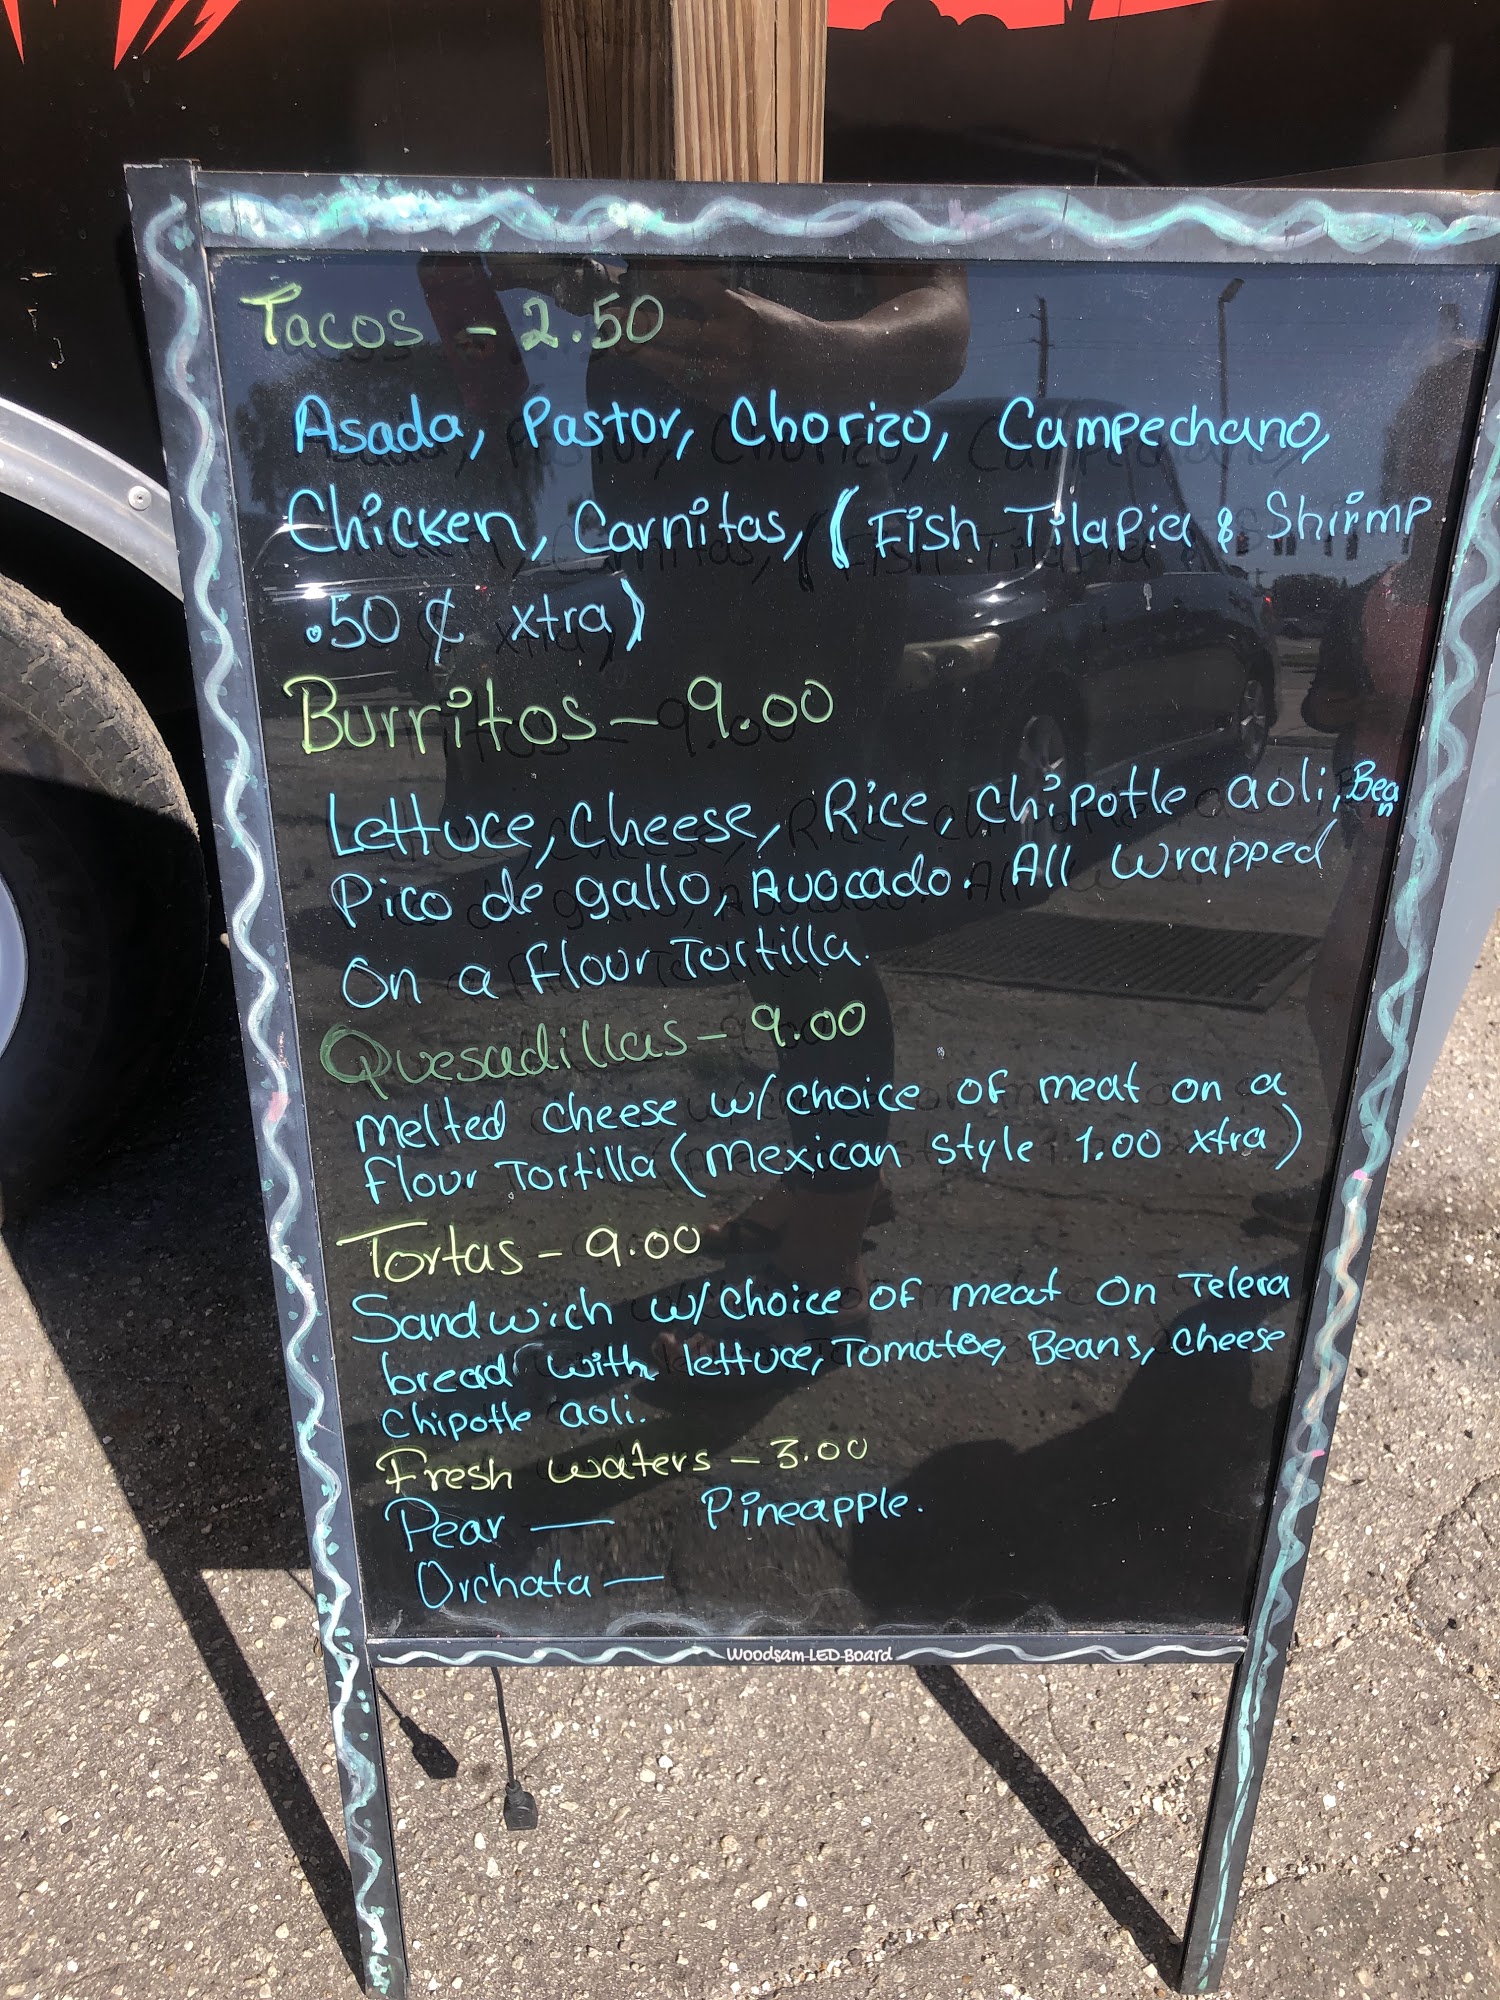 Tacos - 2.50
Asada, Pastor, Chorizo, Campechano,
Chicken, Carnitas, (Fish Tilapia & Shirmp
.50 ¢ xtra)
Burritos - 9.00
Lettuce, Cheese, Rice, Chipotle aoli, Bean
Pico de gallo, Avocado. All wrapped
On a flour Tortilla.
Quesadillas - 9.00
Melted Cheese w/ choice of meat on a
flour Tortilla (Mexican style 1.00 xtra)
Tortas - 9.00
Sandwich w/ choice of meat on Telera
bread with lettuce, Tomatoe, Beans, Cheese
Chipotle aoli.
Fresh waters - 3.00
Pear — Pineapple.
Orchata —
Woodsam LED Board